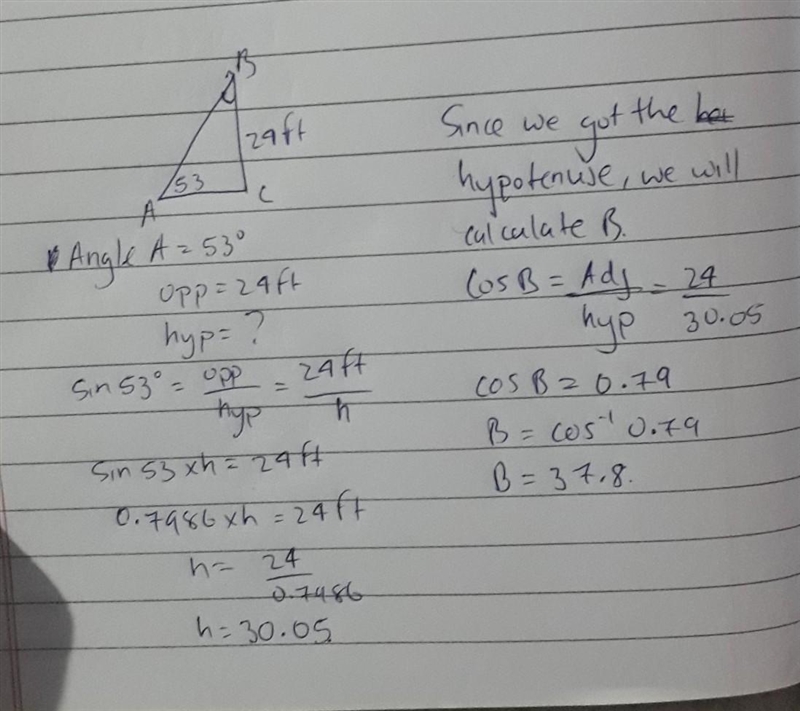 B
24ft
53
A
C
Angle A = 53°
opp = 24ft
hyp = ?
Sin 53° = opp/hyp = 24ft/h
Sin 53 x h = 24ft
0.7986 x h = 24ft
h = 24/0.7986
h = 30.05
Since we got the
hypotenuse, we will
calculate B.
Cos B = Adj/hyp = 24/30.05
Cos B = 0.79
B = cos⁻¹ 0.79
B = 37.8.